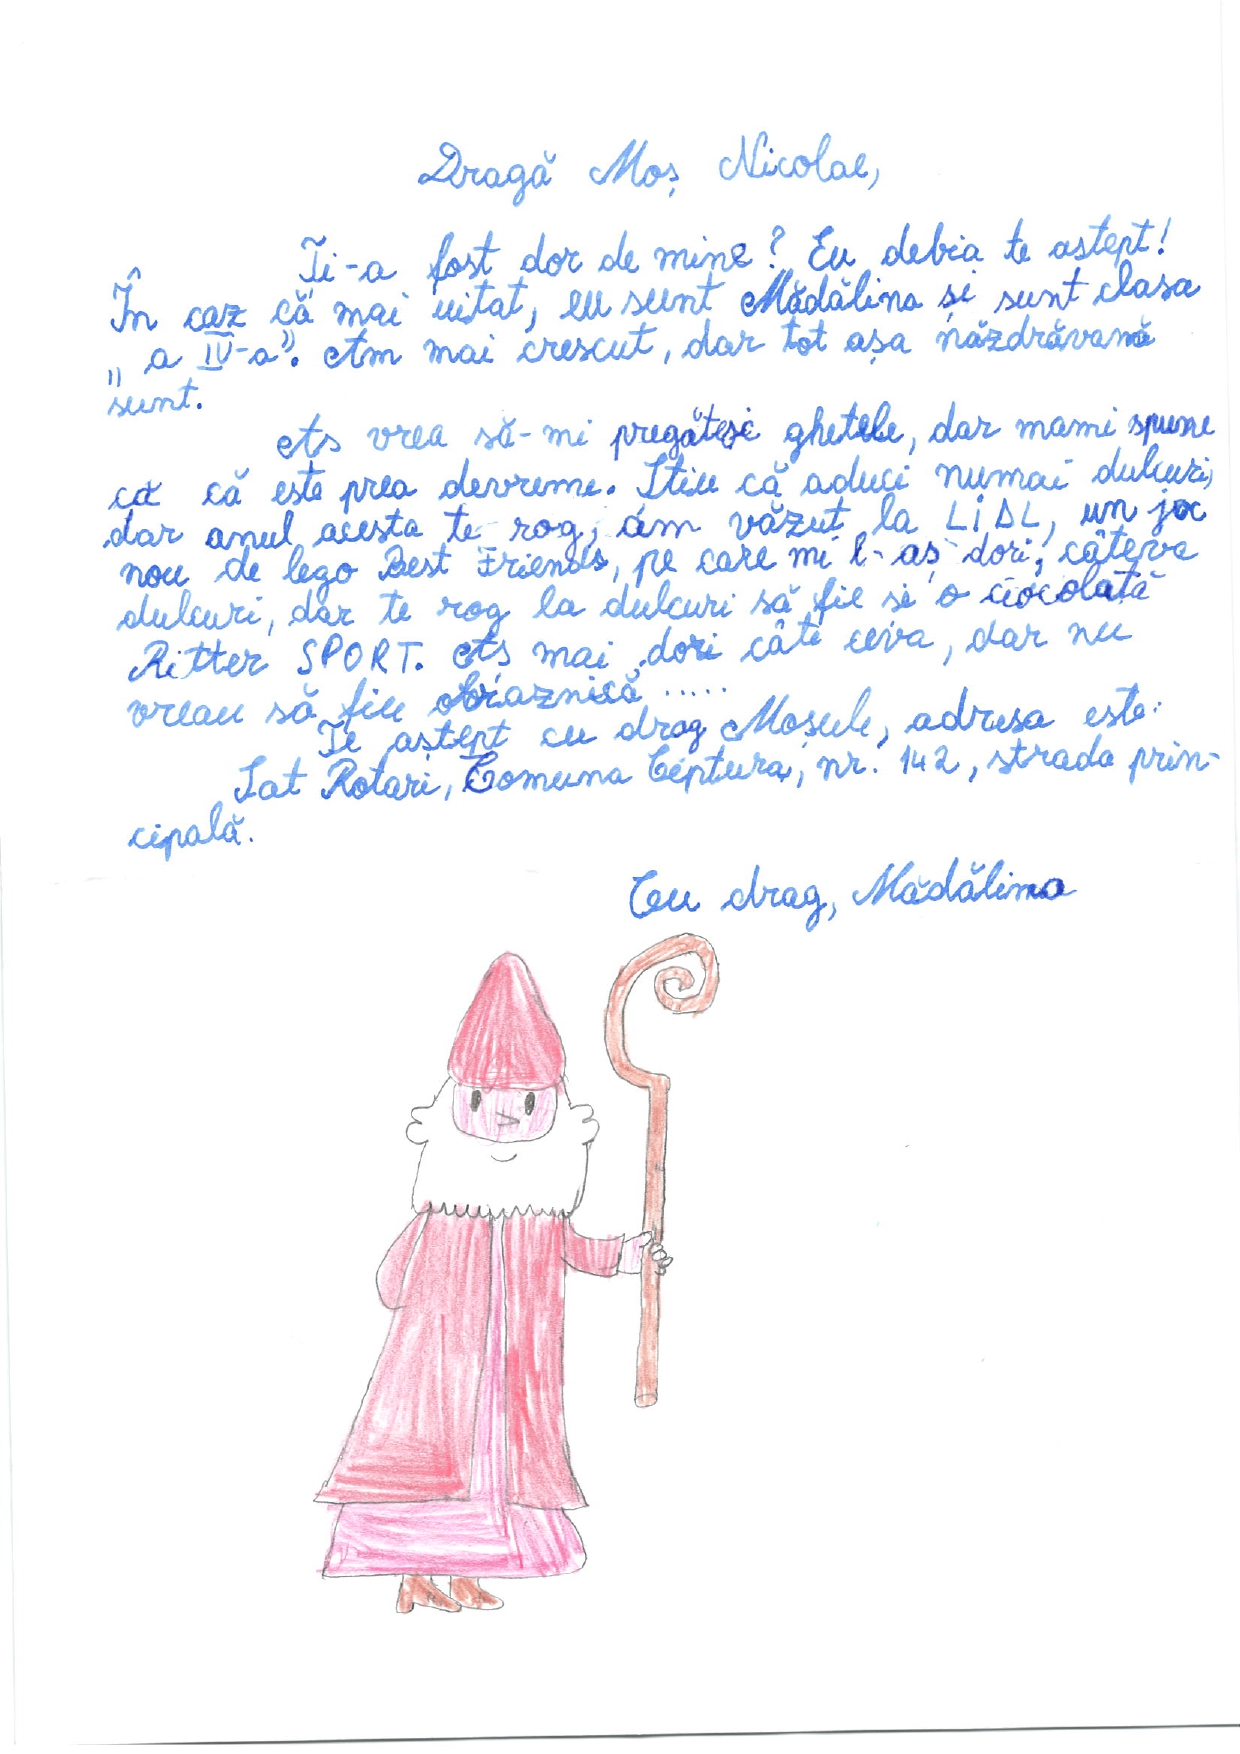 Dragă Moș Nicolae,
Ți-a fost dor de mine? Eu debia te astept!
În caz că mai uitat, eu sunt Mădălina și sunt clasa
„a IV-a”. Am mai crescut, dar tot așa năzdrăvană
sunt.
As vrea să-mi pregătesc ghetele, dar mami spune
ca că este prea devreme. Stiu că aduci numai dulciuri,
dar anul acesta te rog, am văzut la LiDL, un joc
nou de lego Best Friends, pe care mi l-aș dori, câteva
dulciuri, dar te rog la dulciuri să fie si o ciocolată
Ritter SPORT. As mai dori câte ceva, dar nu
vreau să fiu obraznică .....
Te aștept cu drag Moșule, adresa este:
Sat Rotari, Comuna Ceptura, nr. 142, strada prin-
cipală.
Cu drag, Mădălina